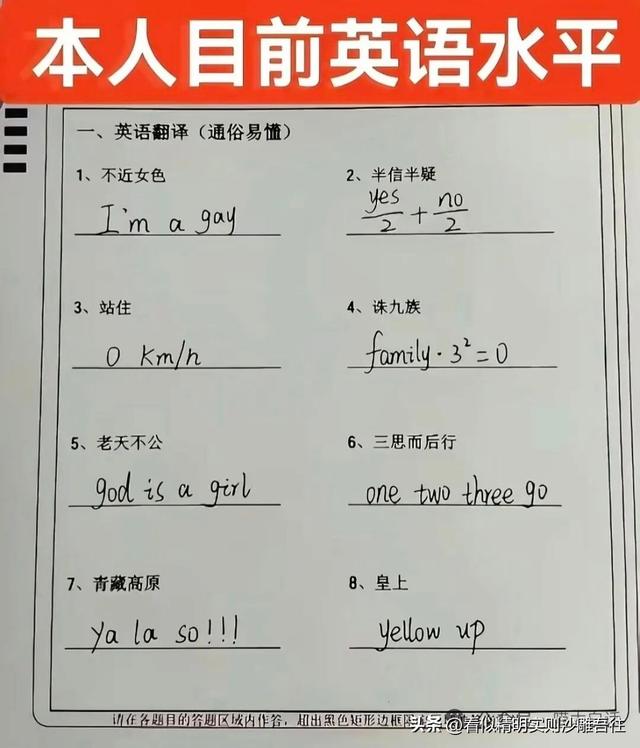 本人目前英语水平
一、英语翻译（通俗易懂）
1、不近女色
I'm a gay
2、半信半疑
yes/2 + no/2
3、站住
0 km/h
4、诛九族
family·3²=0
5、老天不公
god is a girl
6、三思而后行
one two three go
7、青藏高原
ya la so!!!
8、皇上
yellow up
请在各题目的答题区域内作答，超出黑色矩形边框
头条@看似精明实则沙雕吾往